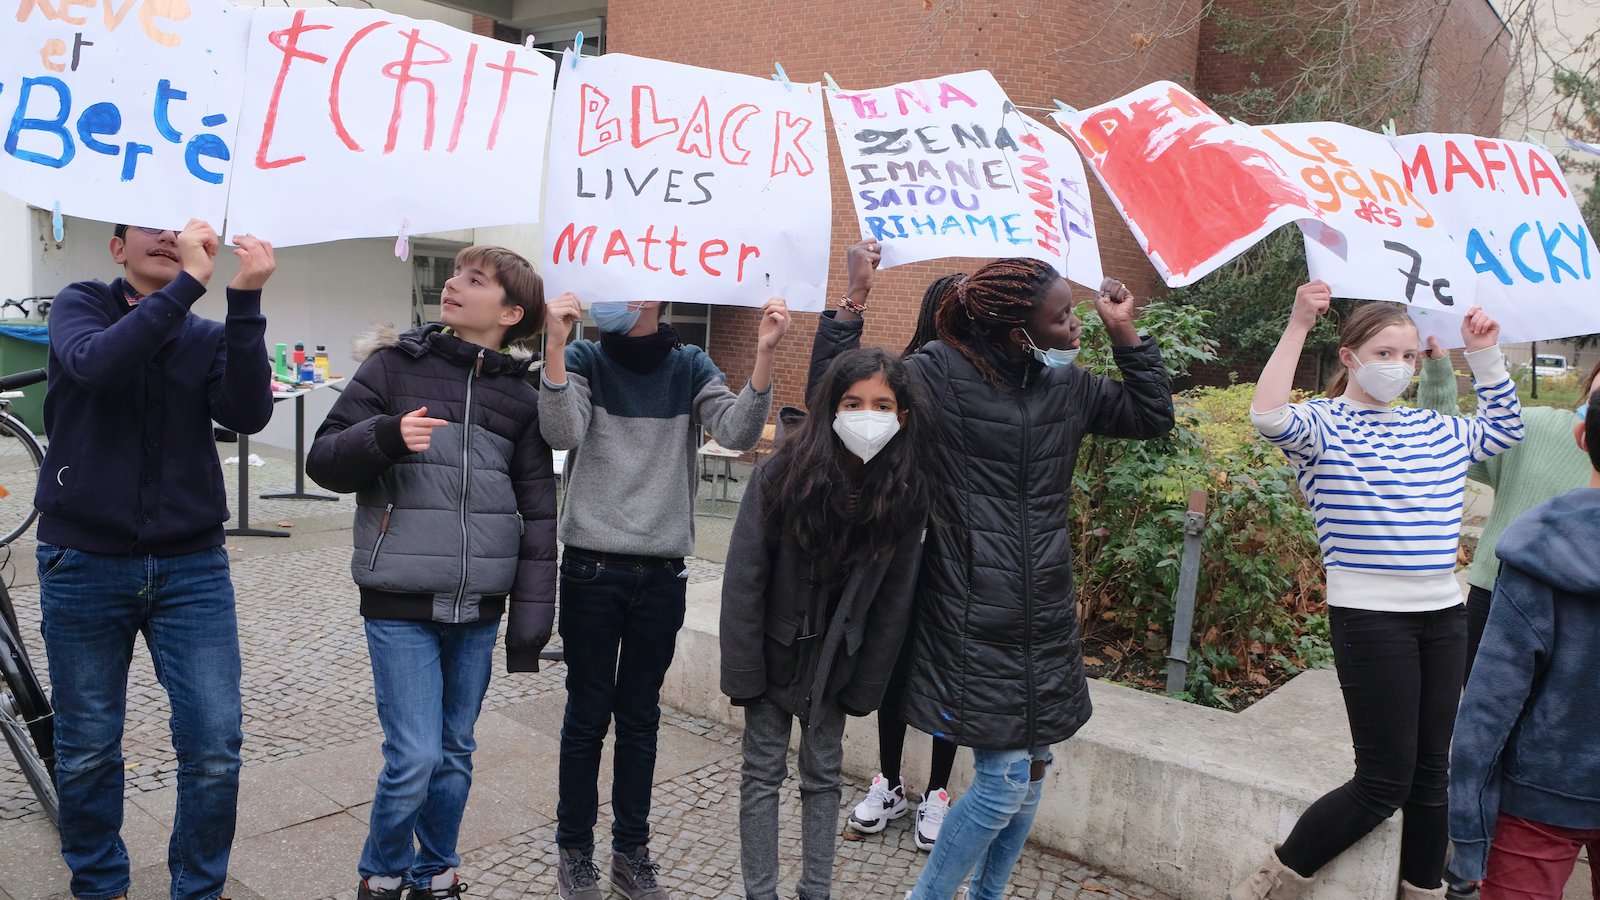 REVE
et
Berté
ECRIT
BLACK
LIVES
Matter
TINA
ZENA
IMANE
SATOU
RIHAME
HANNA
Le
gang
des
7c
MAFIA
ACKY